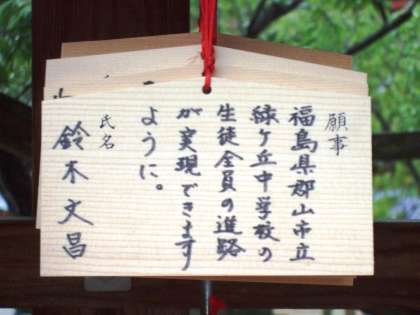 願事
福島県郡山市立
緑ケ丘中学校の
生徒全員の進路
が実現できます
ように。
氏名
鈴木文昌